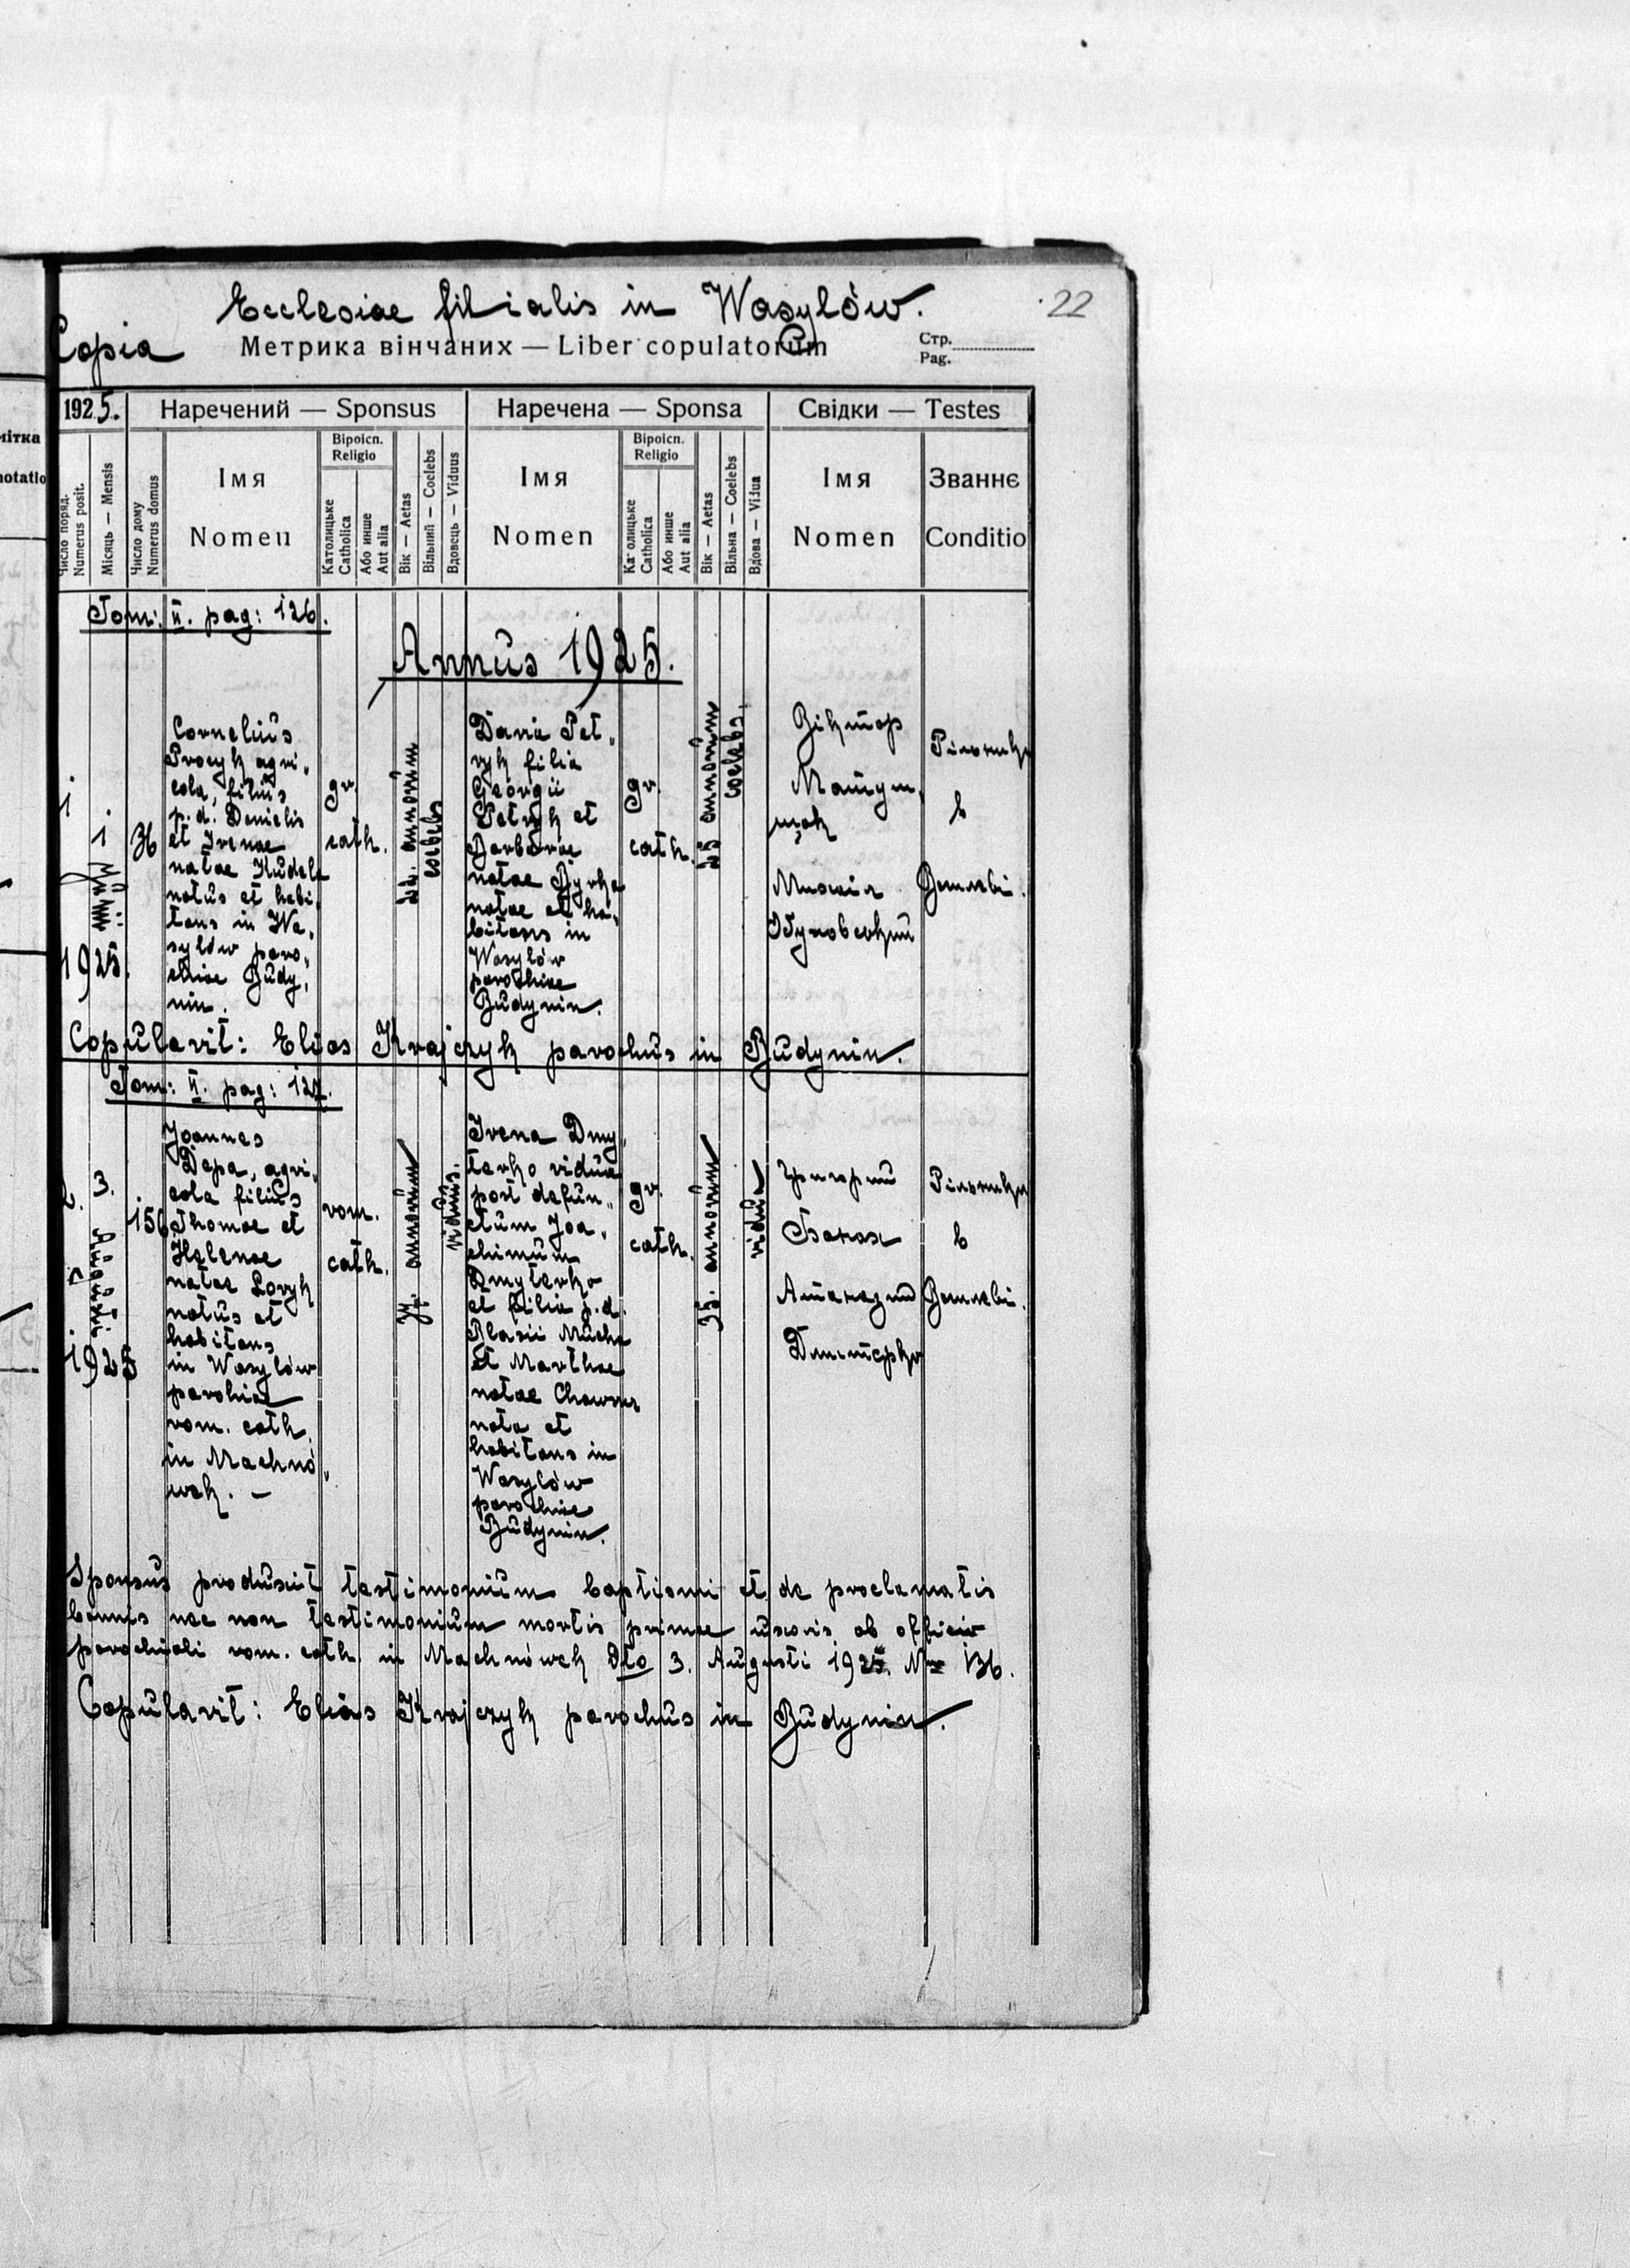 Ecclesiae filialis in Wasylów.
22
Copia
Метрика вінчаних — Liber copulatorum
Стр.
Pag.
1925.
Наречений — Sponsus
Наречена — Sponsa
Свідки — Testes
Число поряд.
Numerus posit.
Місяць — Mensis
Число дому
Numerus domus
Імя
Nomen
Віроісп.
Religio
Католицьке
Catholica
Або инше
Aut alia
Вік — Aetas
Вільний — Coelebs
Вдовець — Viduus
Імя
Nomen
Віроісп.
Religio
Католицьке
Catholica
Або инше
Aut alia
Вік — Aetas
Вільна — Coelebs
Вдова — Vidua
Імя
Nomen
Званнє
Conditio
Tom: II. pag: 126.
Annus 1925.
1
1
Julii
1925.
36
Cornelius
Procyk agri„
cola, filius
p. d. Danielis
et Irenae
natae Kudela
natus et habi„
tans in Wa„
sylów paro„
chiae Budy„
nin.
gr.
cath.
22. annorum
coelebs
Daria Pet„
ryk filia
Georgii
Petryk et
Barbarae
natae Dyrka
natae et ha„
bitans in
Wasylów
parochiae
Budynin.
gr.
cath.
25 annorum
coelebs.
Віктор
Михаіл
Рільники
ь
Землеві.
Copulavit: Elias Krajczyk parochus in Budynin.
Tom: II. pag: 127.
2.
3.
Augusti
1925
156
Joannes
Depa, agri„
cola filius
Thomae et
Helenae
natae Loryk
natus et
habitans
in Wasylów
parohiae
rom. cath.
in Machnó„
wek. —
rom.
cath.
37. annorum
viduus.
Irena Dmy„
terko vidua
post defun„
ctum Joa„
chimum
Dmyterko
et filia p. d.
Blasii Mucha
et Marthae
natae
nata et
habitans in
Wasylów
parochiae
Budynin.
gr.
cath.
35. annorum
vidua
Григорий
Атаназий
Дмитерко
Рільники
ь
Землеві.
Sponsus produxit testimonium baptismi et de proclamatis
bannis nec non testimonium mortis primae uxoris ab officio
parochiali rom. cath. in Machnówek dto 3. Augusti 1925. Nro 136.
Copulavit: Elias Krajczyk parochus in Budynin.